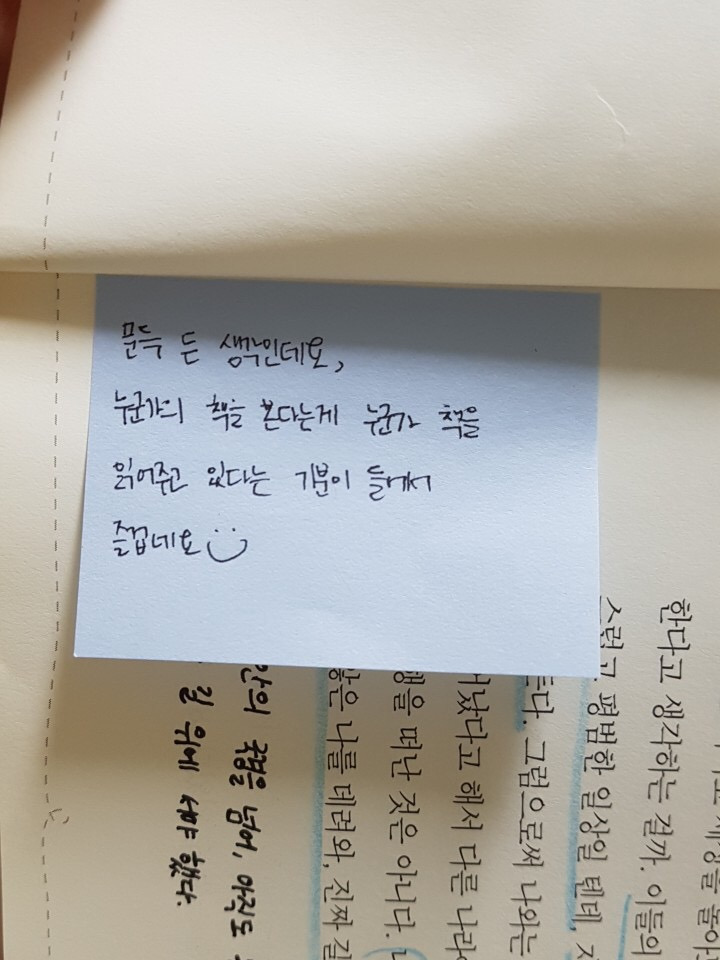 문득 든 생각인데요,
누군가의 책을 본다는게 누군가 책을
읽어주고 있다는 기분이 들어서
즐겁네요
한다고 생각하는 걸까. 이들의
스럽고 평범한 일상일 텐데,
그럼으로써 나와는
해서 다른
떠난 것은 아니다.
나를 데려와, 진짜
넘어, 아직도
길 위에 서야 했다.